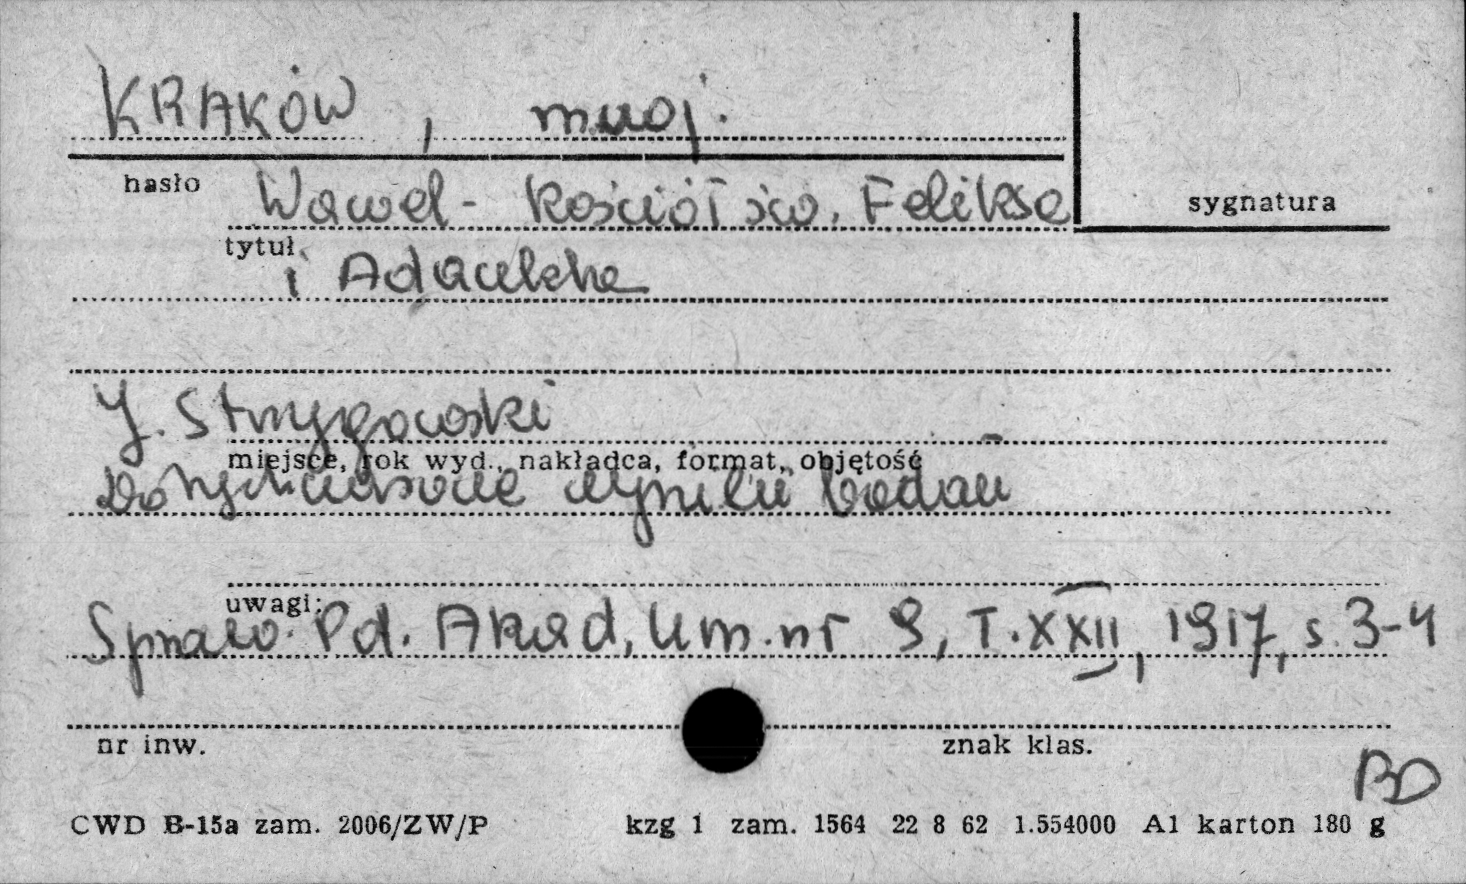 KRAKÓW, muoj.
hasło
Wawel - kościół św. Feliksa
sygnatura
tytuł
i Adaukta
J. Strzygowski
miejsce, rok wyd., nakładca, format, objętość
Dotychczasowe wyniki badań
uwagi:
Spraw. Pd. Akad. Um. nr 9, T. XXII, 1917, s. 3-4
nr inw.
znak klas.
BD
CWD B-15a zam. 2006/ZW/P kzg 1 zam. 1564 22 8 62 1.554000 A1 karton 180 g